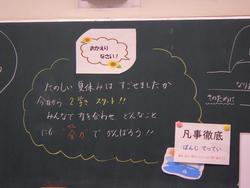 おかえり
なさい!
たのしい 夏休みは すごせましたか
今日から 2学き スタート!!
みんなで 力を合わせ どんなこと
にも 全力で がんばろう!!
凡事徹底
ぼんじ てってい